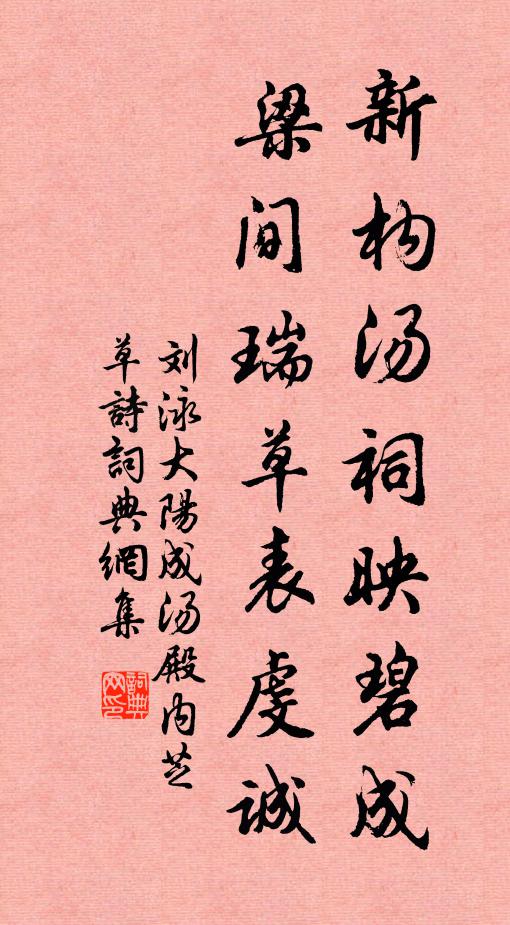 新构汤祠映碧成
梁间瑞草表虔诚
刘泳大陽成汤殿内芝
草詩詞典網集
詞典網印